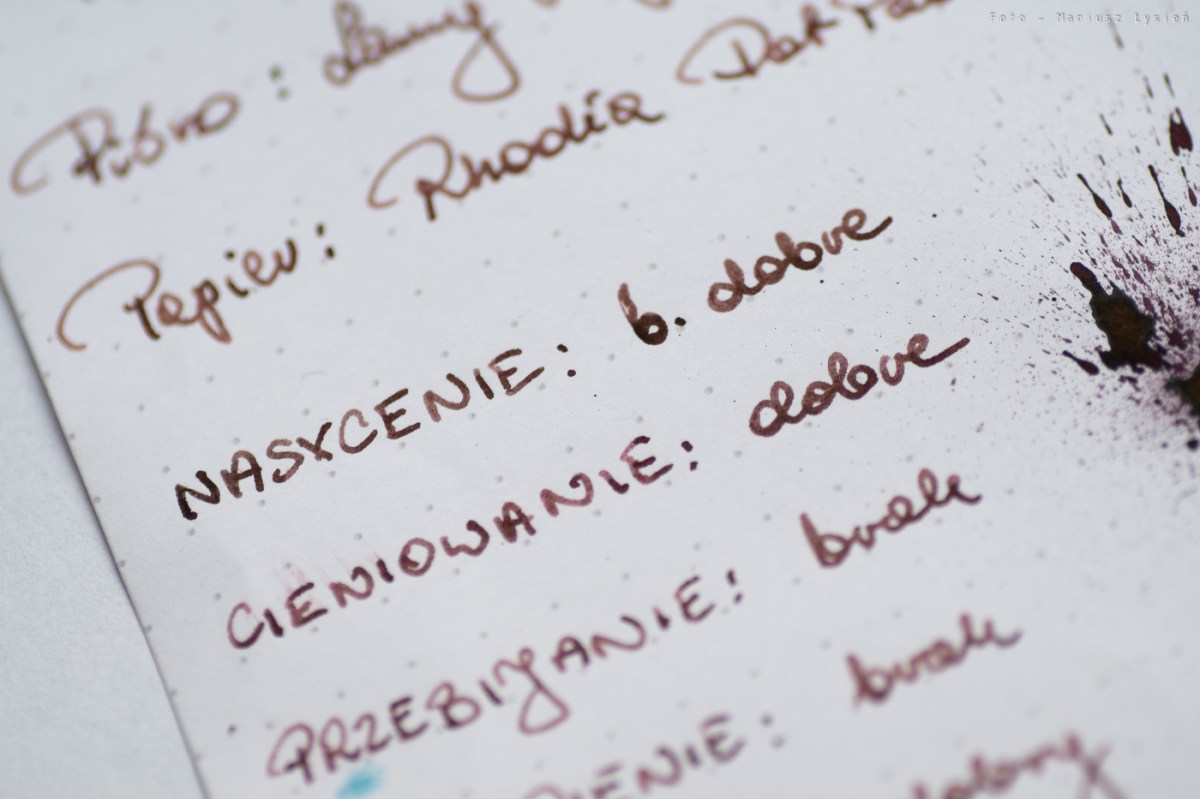 Foto - Mariusz Łysień
Pióro : Lamy
Papier : Rhodia Dot
NASYCENIE : b. dobre
CIENIOWANIE : dobre
PRZEBIJANIE : brak
brak